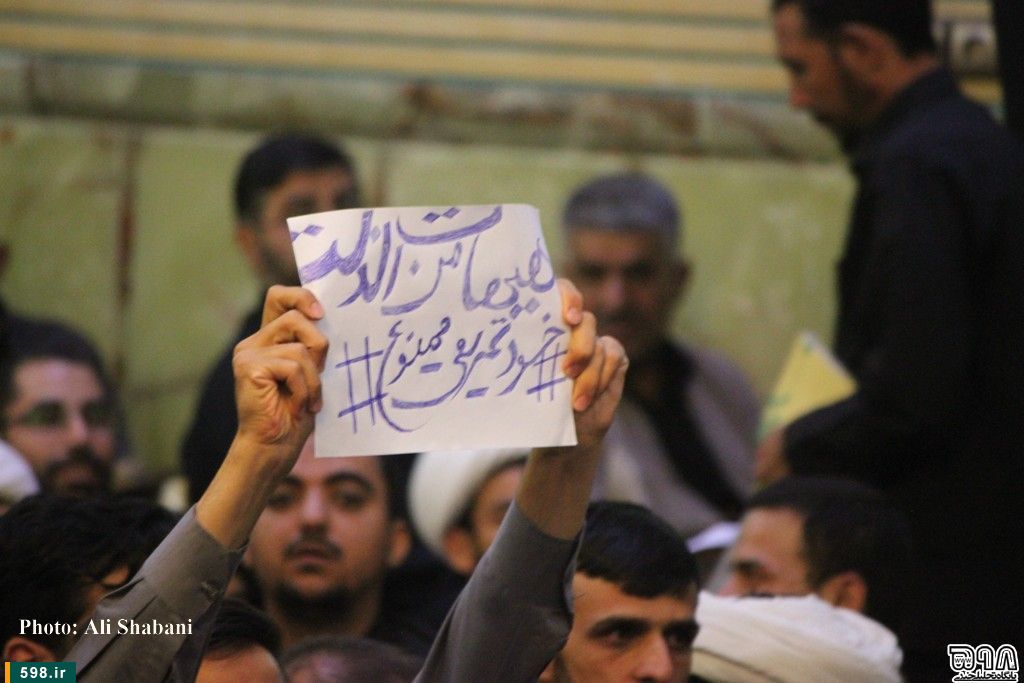 هیهات من الذلت
#خودتحریمی ممنوع#
Photo: Ali Shabani
598.ir
۵۹۸